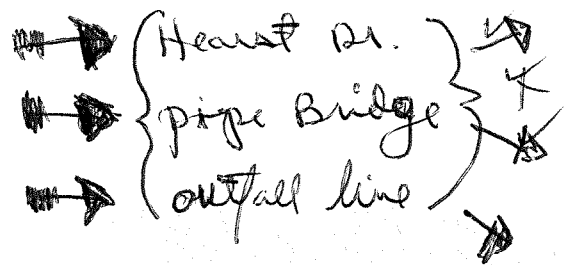 Hearst Dr.
pipe Bridge
outfall line